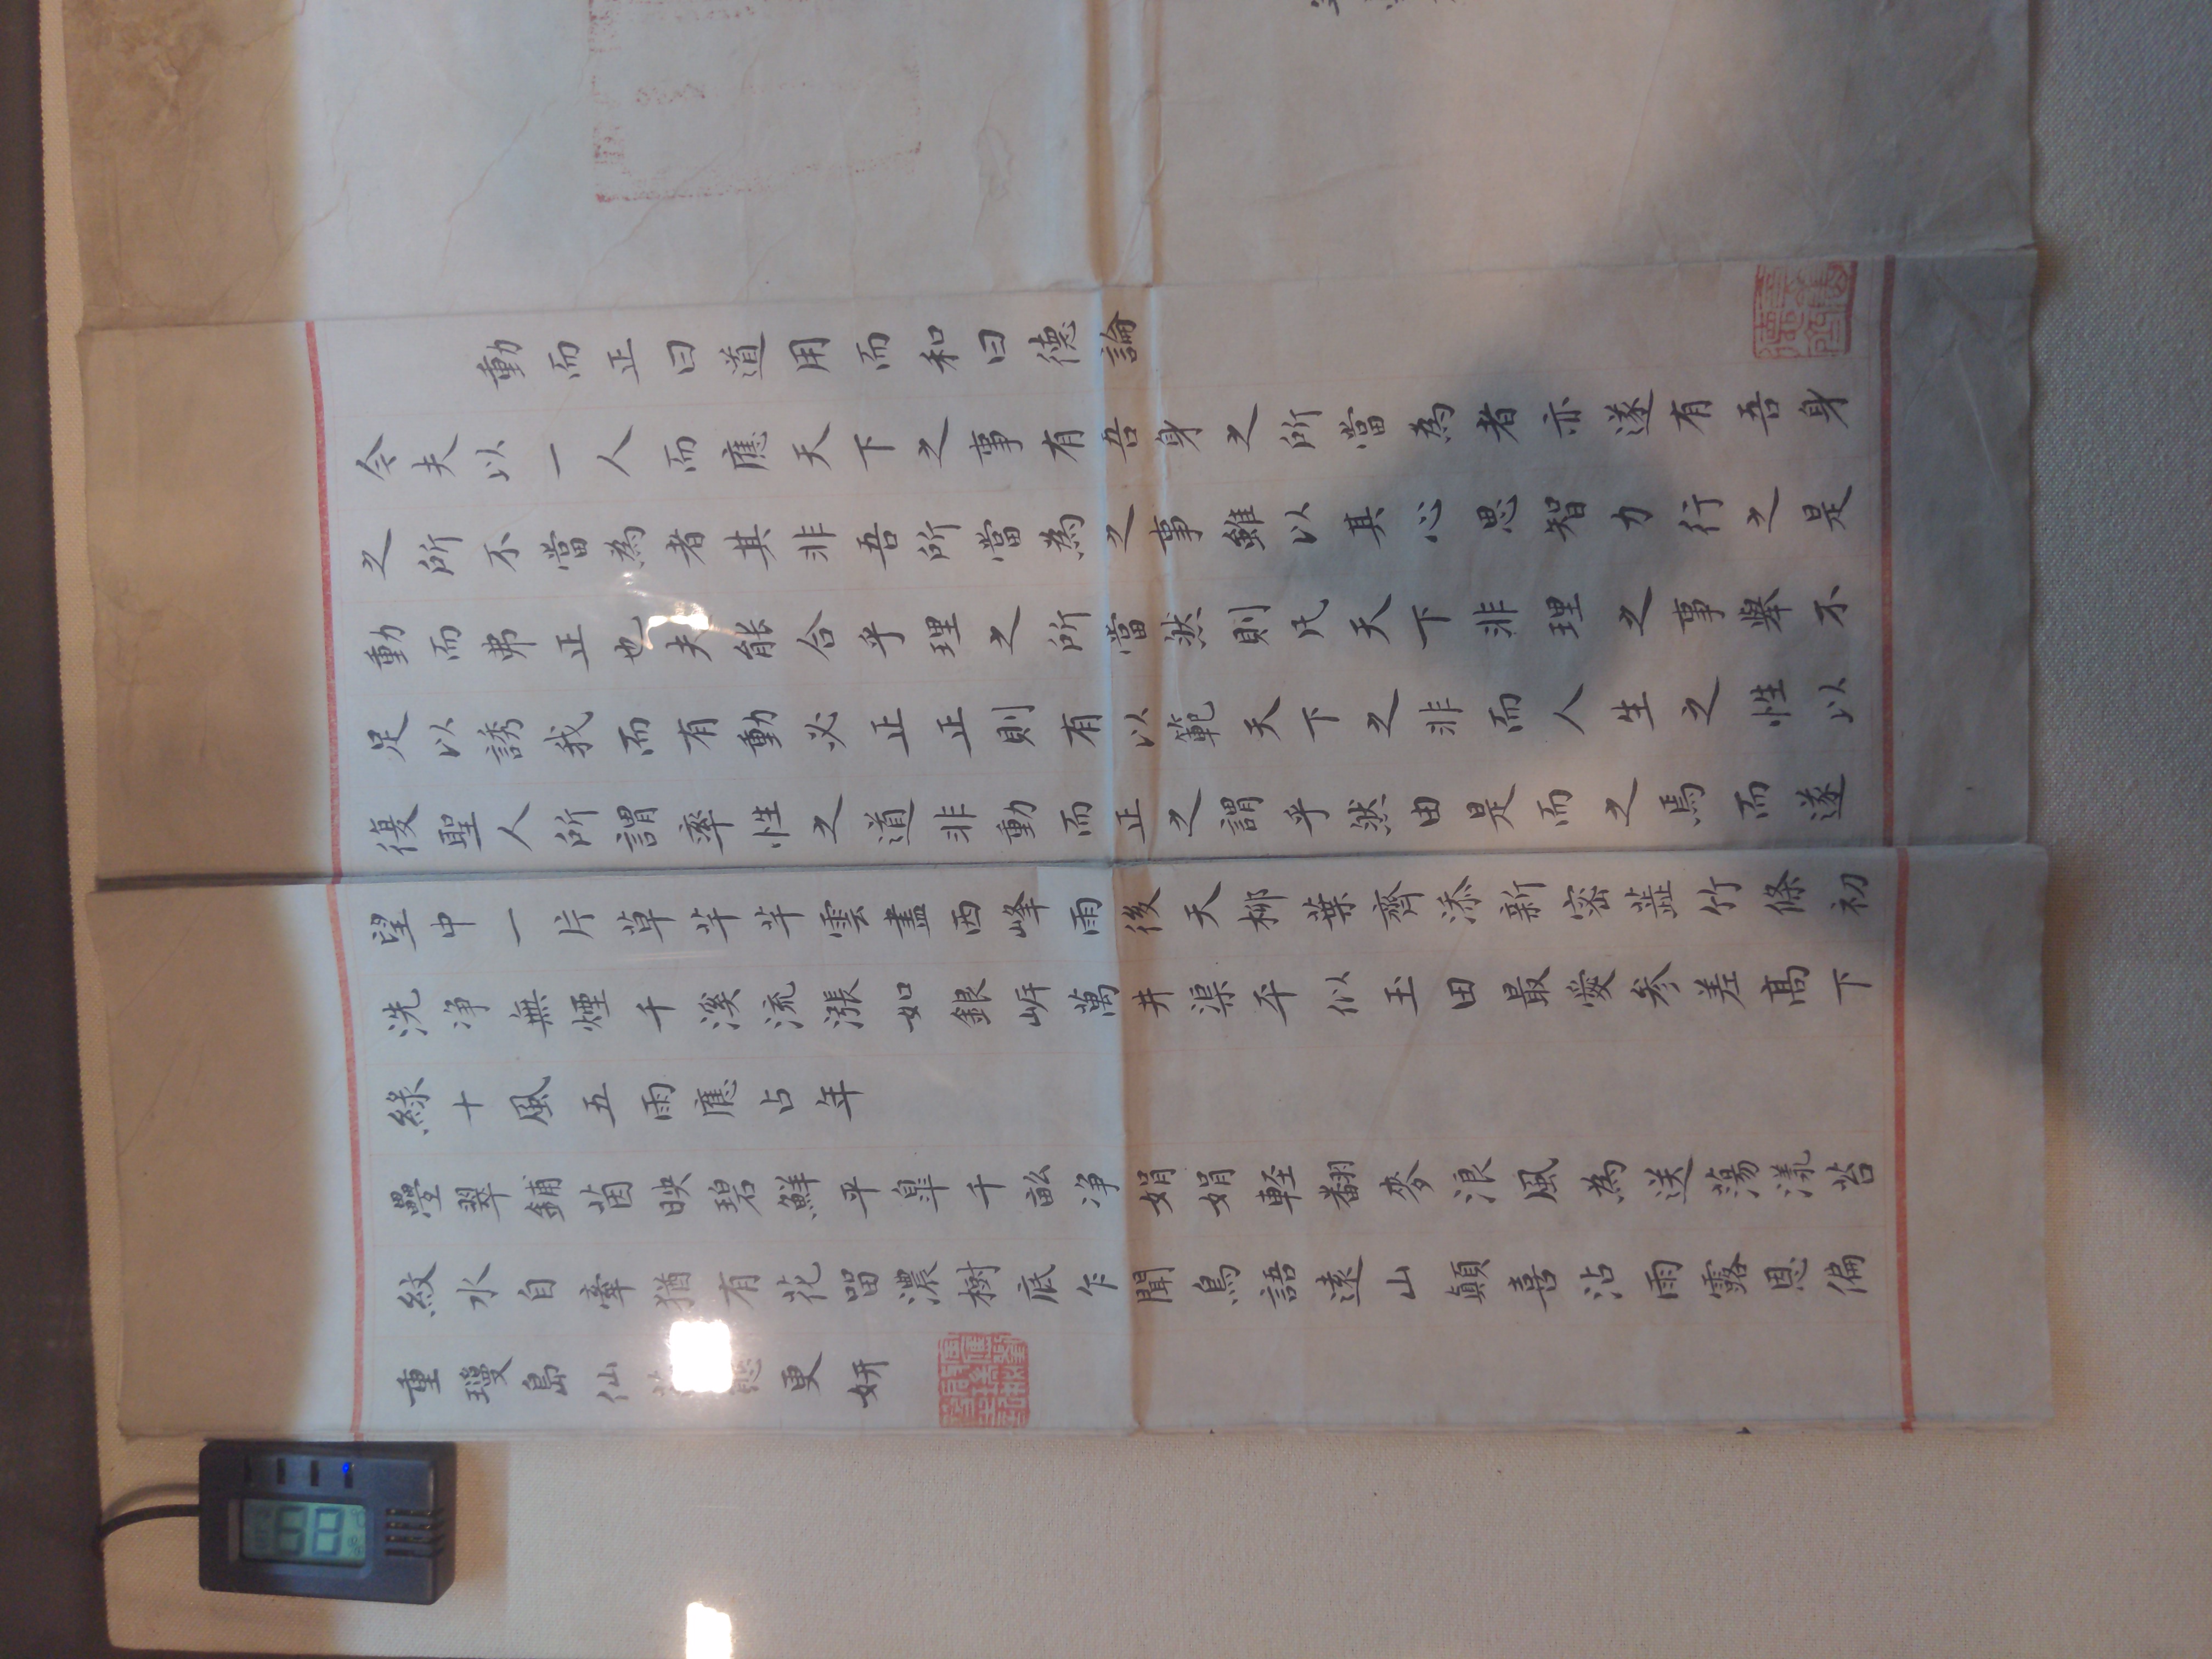 動而正曰道用而和曰德論
今夫以一人而應天下之事有吾身之所當為者亦遂有吾身
之所不當為者其非吾所當為之事雖以其心思智力行之是
動而弗正也夫能合乎理之所當然則凡天下非理之事舉不
足以誘我而有動必正正則有以範天下之非而人生之性以
復聖人所謂率性之道非動而正之謂乎然由是而之焉而遂
望中一片草芊芊雲盡西峰雨後天柳葉齊添新密葢竹條初
洗净無煙千溪流漲如銀岍萬井渠平似玉田最愛參差高下
綠十風五雨應占年
疊翠鋪茵映碧鮮平臯千畝净娟娟輕翻麥浪風為送蕩漾苔
紋水自牽猶有花留濃樹底乍聞鳥語遠山巔喜沾雨露恩偏
重瓊島仙更妍